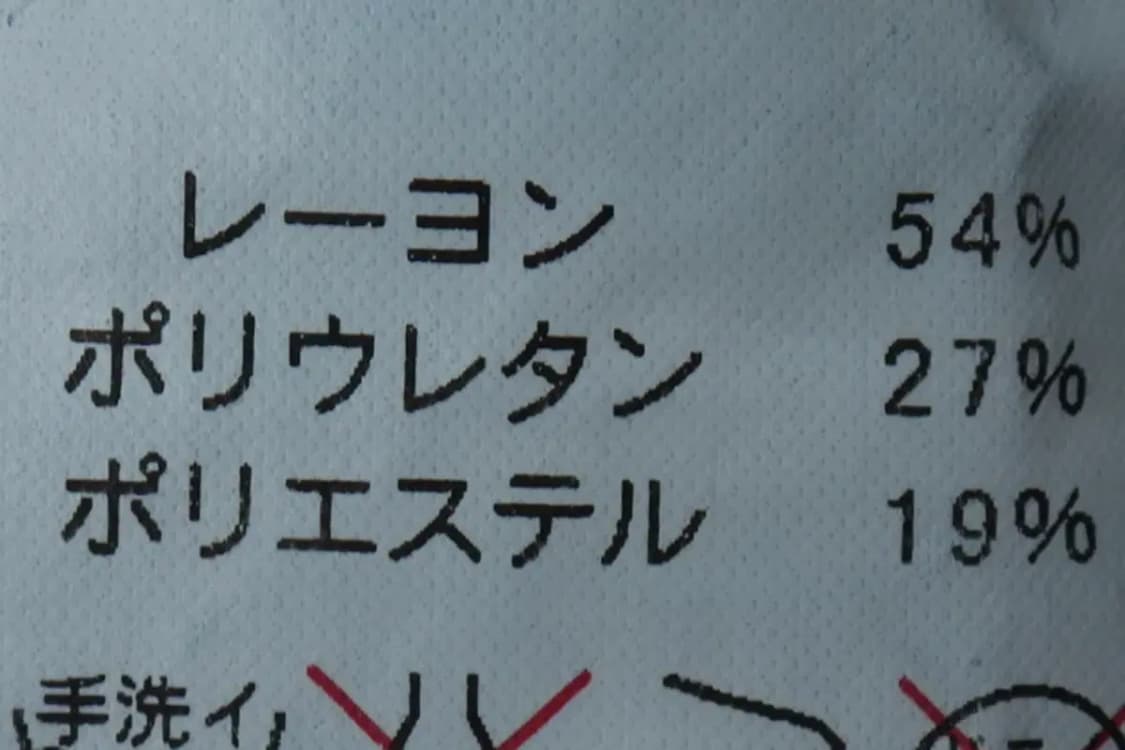 レーヨン 54%
ポリウレタン 27%
ポリエステル 19%
手洗イ